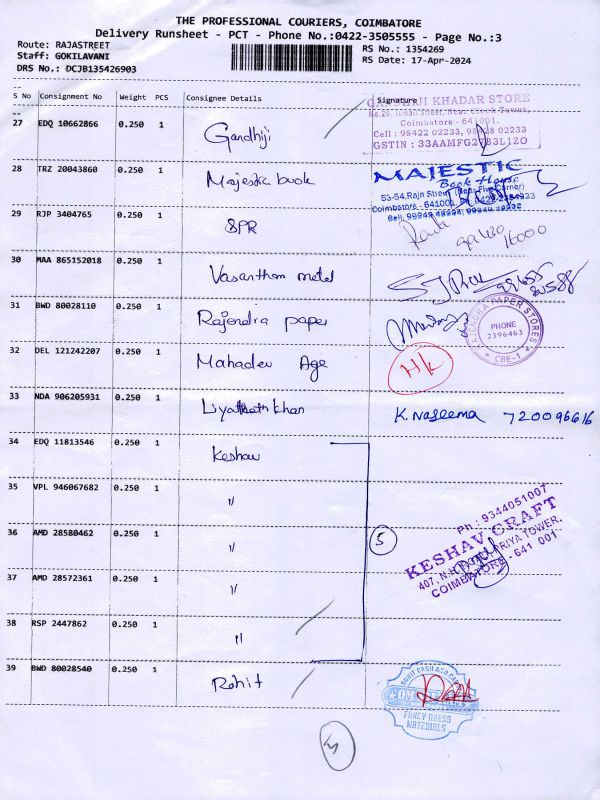 THE PROFESSIONAL COURIERS, COIMBATORE
Delivery Runsheet - PCT - Phone No.:0422-3505555 - Page No.:3
Route: RAJASTREET
RS No.: 1354269
Staff: GOKILAVANI
RS Date: 17-Apr-2024
DRS No.: DCJB135426903
S No Consignment No Weight PCS Consignee Details Signature
27 EDQ 10662866 0.250 1 Gandhiji
GANDHIJI KHADAR STORE
Coimbatore - 641001.
Cell : 98422 02233, 98428 02233
GSTIN : 33AAMFG2783L1ZO
28 TRZ 20043860 0.250 1 Majestic book
MAJESTIC
Book House
53-54, Raja Street (Near Five Corner)
Coimbatore - 641001
29 RJP 3404765 0.250 1 SPR
30 MAA 865152018 0.250 1 Vasantham metal
31 BWD 80028110 0.250 1 Rajendra paper
RAJENDRA PAPER STORES
PHONE
2396463
CBE-1
32 DEL 121242207 0.250 1 Mahadev Age
HK
33 NDA 906205931 0.250 1 Liyathathkhan K. Naseema 720096616
34 EDQ 11813546 0.250 1 Keshav
35 VPL 946067682 0.250 1 "
36 AMD 28580462 0.250 1 "
5
Ph : 9344051007
KESHAV CRAFT
COIMBATORE - 641 001
37 AMD 28572361 0.250 1 "
38 RSP 2447862 0.250 1 "
39 BWD 80028540 0.250 1 Rohit
ROHIT CASH AND CARRY
FANCY DRESS
MATERIALS